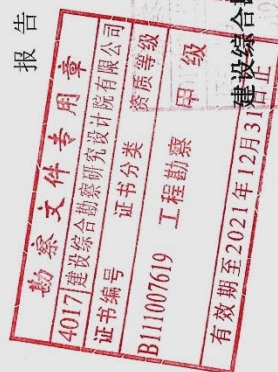 报告
勘察文件专用章
4017 建设综合勘察研究设计院有限公司
证书编号 证书分类 资质等级
B111007619 工程勘察 甲级
有效期至2021年12月31日止
建设综合